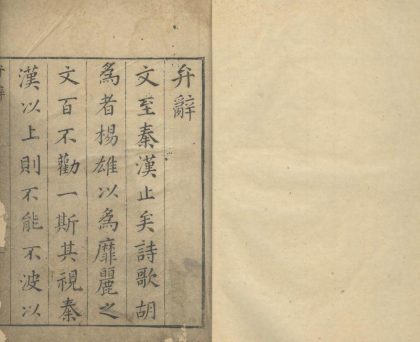 弁辭
文至秦漢止矣詩歌胡
為者楊雄以為靡麗之
文百不勸一斯其視秦
漢以上則不能不波以
弁辭